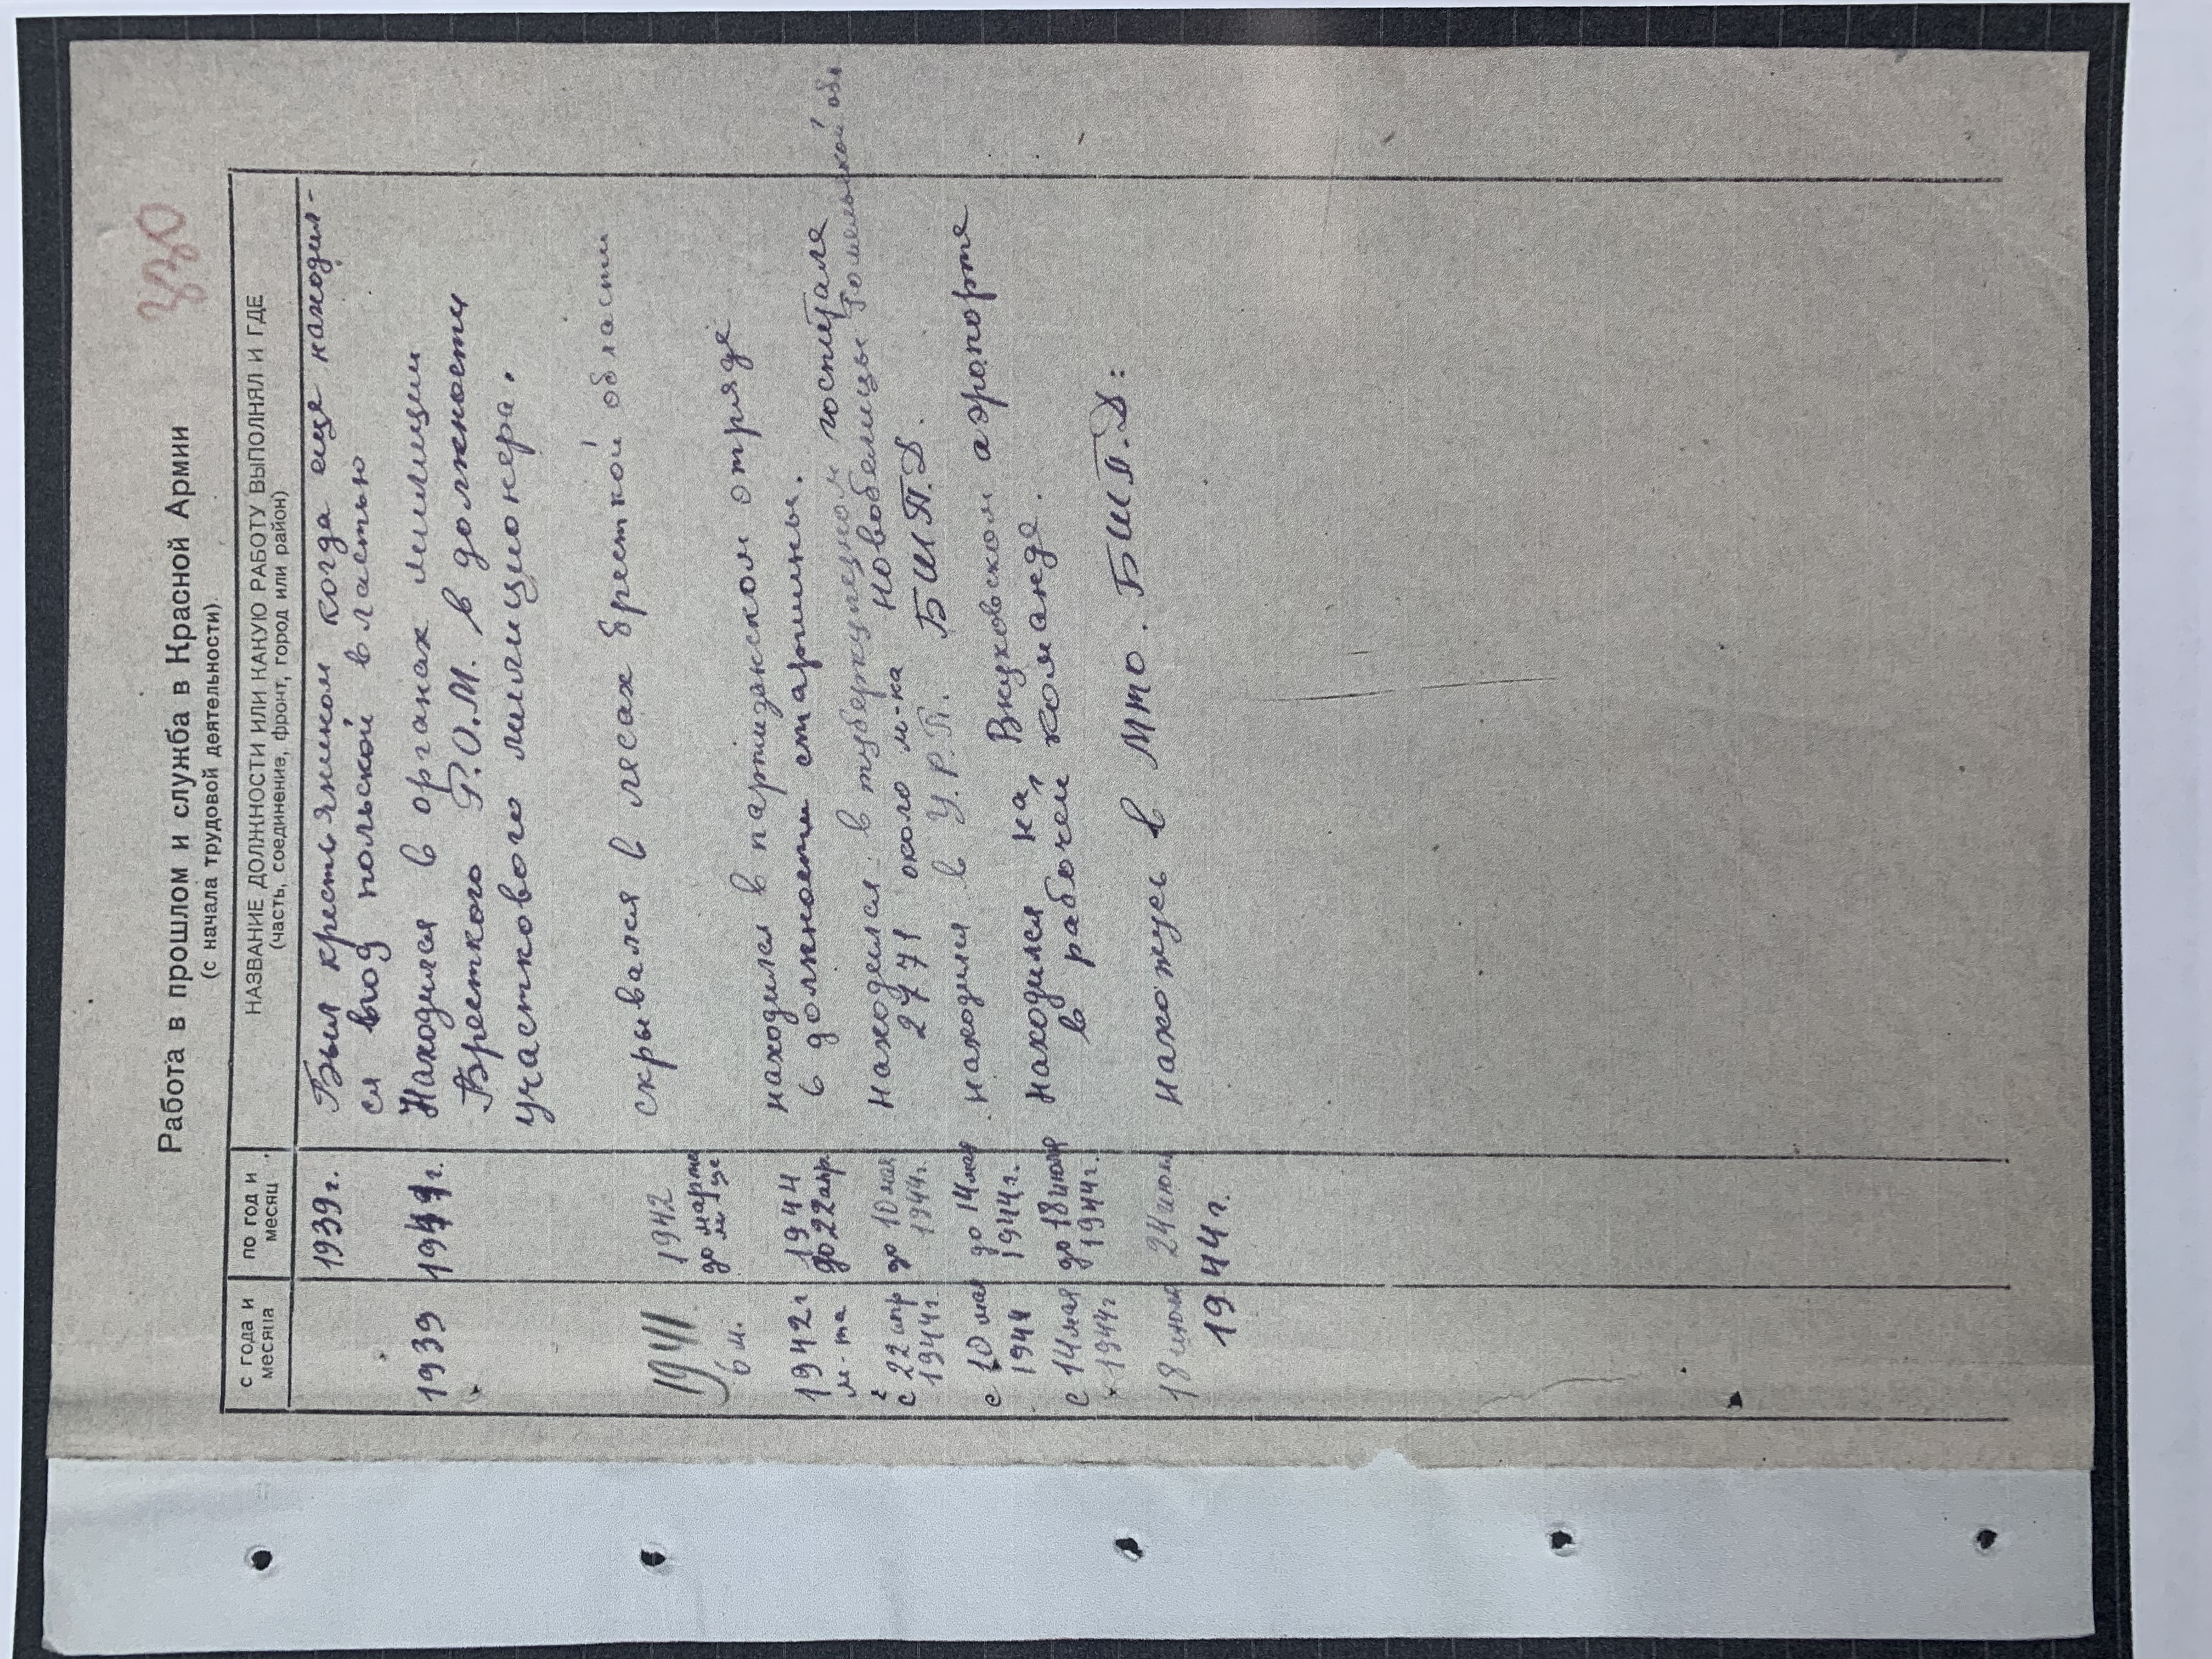 330
Работа в прошлом и служба в Красной Армии
(с начала трудовой деятельности).
с года и месяца
по год и месяц
НАЗВАНИЕ ДОЛЖНОСТИ ИЛИ КАКУЮ РАБОТУ ВЫПОЛНЯЛ И ГДЕ
(часть, соединение, фронт, город или район)
1939 г. Был крестьянином когда еще находил-
ся под польской властью
1939 1941 г. Находился в органах милиции
Бресткого Р.О.М. в должности
участкового милиционера.
1941 1942 скрывался в лесах бресткой области
6 м. до марта
м-це
1942 г 1944 находился в партизанском отряде
м-та до 22 апр. в должности старшины.
с 22 апр до 10 мая находился в туберкулезном госпитале
1944 г. 1944 г. 2771 около м-ка Новобелицы Гомельской обл
с 10 мая до 14 мая находился в У.Р.П. БШП.Д.
1944 1944 г.
с 14 мая до 18 июня находился на Внуковском аэропорте
1944 г 1944 г. в рабочей команде.
18 июня 24 июня нахожусь в Мто. БШП.Д:
1944 г.